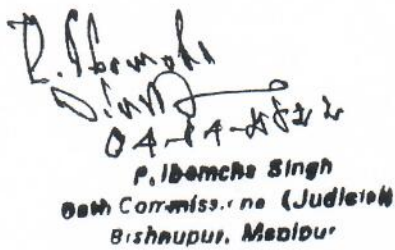 P. Ibomcha
Singh
P. Ibomcha Singh
Oath Commissione (Judicial)
Bishnupur, Manipur